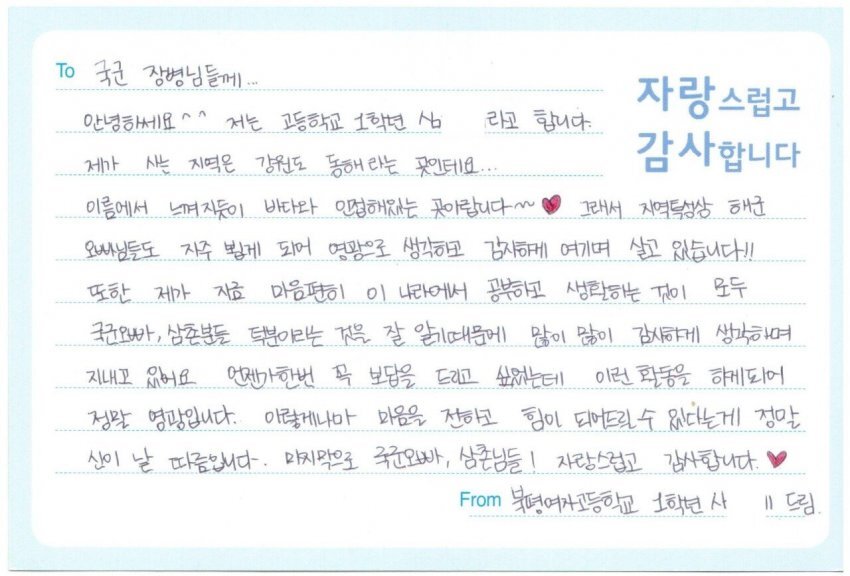 To 국군 장병님들께...
자랑스럽고
감사합니다
안녕하세요^^ 저는 고등학교 1학년 심 라고 합니다.
제가 사는 지역은 강원도 동해라는 곳인데요...
이름에서 느껴지듯이 바다와 인접해있는 곳이랍니다~♥ 그래서 지역특성상 해군
오빠님들도 자주 뵙게 되어 영광으로 생각하고 감사하게 여기며 살고 있습니다!!
또한 제가 지효 마음편히 이 나라에서 공부하고 생활하는 것이 모두
국군오빠, 삼촌분들 덕분이라는 것을 잘 알기때문에 많이 많이 감사하게 생각하며
지내고 있어요 언젠가한번 꼭 보답을 드리고 싶었는데 이런 활동을 하게되어
정말 영광입니다. 이렇게나마 마음을 전하고 힘이 되어드릴 수 있다는게 정말
신이 날 따름입니다. 마지막으로 국군오빠, 삼촌님들! 자랑스럽고 감사합니다.♥
From 북평여자고등학교 1학년 드림.